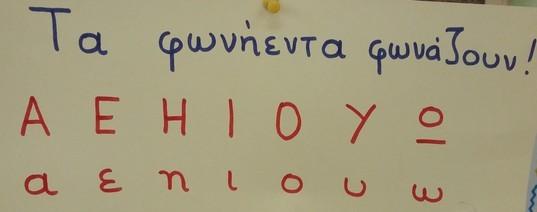 Τα φωνήεντα φωνάζουν!
Α Ε Η Ι Ο Υ Ο
α ε η ι ο υ ω